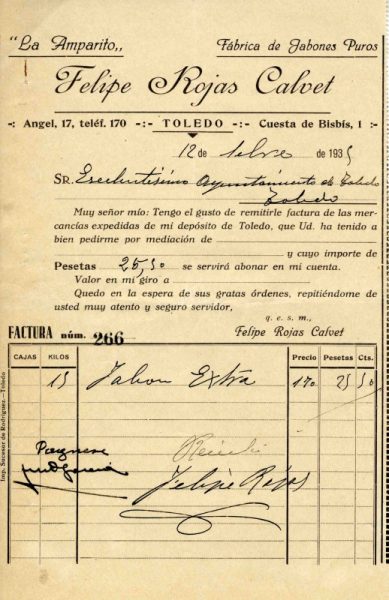 "La Amparito,, Fábrica de Jabones Puros
Felipe Rojas Calvet
-: Angel, 17, teléf. 170 -:- TOLEDO -:- Cuesta de Bisbís, 1 :-
12 de febre de 1935
SR. Excelentisimo Ayuntamiento de Toledo
Toledo
Muy señor mío: Tengo el gusto de remitirle factura de las mer-
cancías expedidas de mi depósito de Toledo, que Ud. ha tenido a
bien pedirme por mediación de
y cuyo importe de
Pesetas 25,50 se servirá abonar en mi cuenta.
Valor en mi giro a
Quedo en la espera de sus gratas órdenes, repitiéndome de
usted muy atento y seguro servidor,
q. e. s. m.,
FACTURA núm. 266 Felipe Rojas Calvet
CAJAS KILOS Precio Pesetas Cts.
15 Jabon Extra 1'70 25 50
Paguese Recibi
Felipe Rojas
Imp. Sucesor de Rodríguez.-Toledo